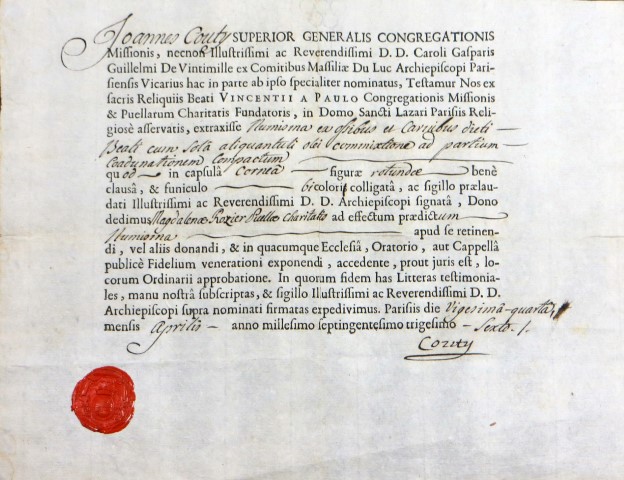 Joannes Couty SUPERIOR GENERALIS CONGREGATIONIS
Missionis, necnon Illustrissimi ac Reverendissimi D. D. Caroli Gasparis
Guillelmi De Vintimille ex Comitibus Massiliæ Du Luc Archiepiscopi Pari-
siensis Vicarius hac in parte ab ipso specialiter nominatus, Testamur Nos ex
sacris Reliquiis Beati VINCENTII A PAULO Congregationis Missionis
& Puellarum Charitatis Fundatoris, in Domo Sancti Lazari Parisiis Reli-
giosè asservatis, extraxisse Numisma ex ossibus et Carnibus dicti
Beati cum solâ aliquantuli olei commixtione ad partium
Coadunationem Compactum
quod in capsulâ Corneâ figuræ rotundæ benè
clausâ, & funiculo bicolori colligatâ, ac sigillo prælau-
dati Illustrissimi ac Reverendissimi D. D. Archiepiscopi signatâ, Dono
dedimus Magdalenæ Rozier Puellæ Charitatis ad effectum prædictum
Numisma apud se retinen-
di, vel aliis donandi, & in quacumque Ecclesiâ, Oratorio, aut Cappellâ
publicè Fidelium venerationi exponendi, accedente, prout juris est, lo-
corum Ordinarii approbatione. In quorum fidem has Litteras testimonia-
les, manu nostrâ subscriptas, & sigillo Illustrissimi ac Reverendissimi D. D.
Archiepiscopi supra nominati firmatas expedivimus. Parisiis die Vigesimâ-quartâ
mensis Aprilis anno millesimo septingentesimo trigesimo Sexto.
Couty